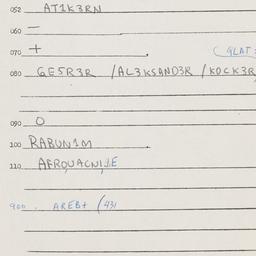 052 AT1K3RN
060 —
070 + (GLAT:
080 GE5R3R /AL3KSAND3R /KOCK3R
090 O
100 RABUN1M
110
900 AREB+ (431